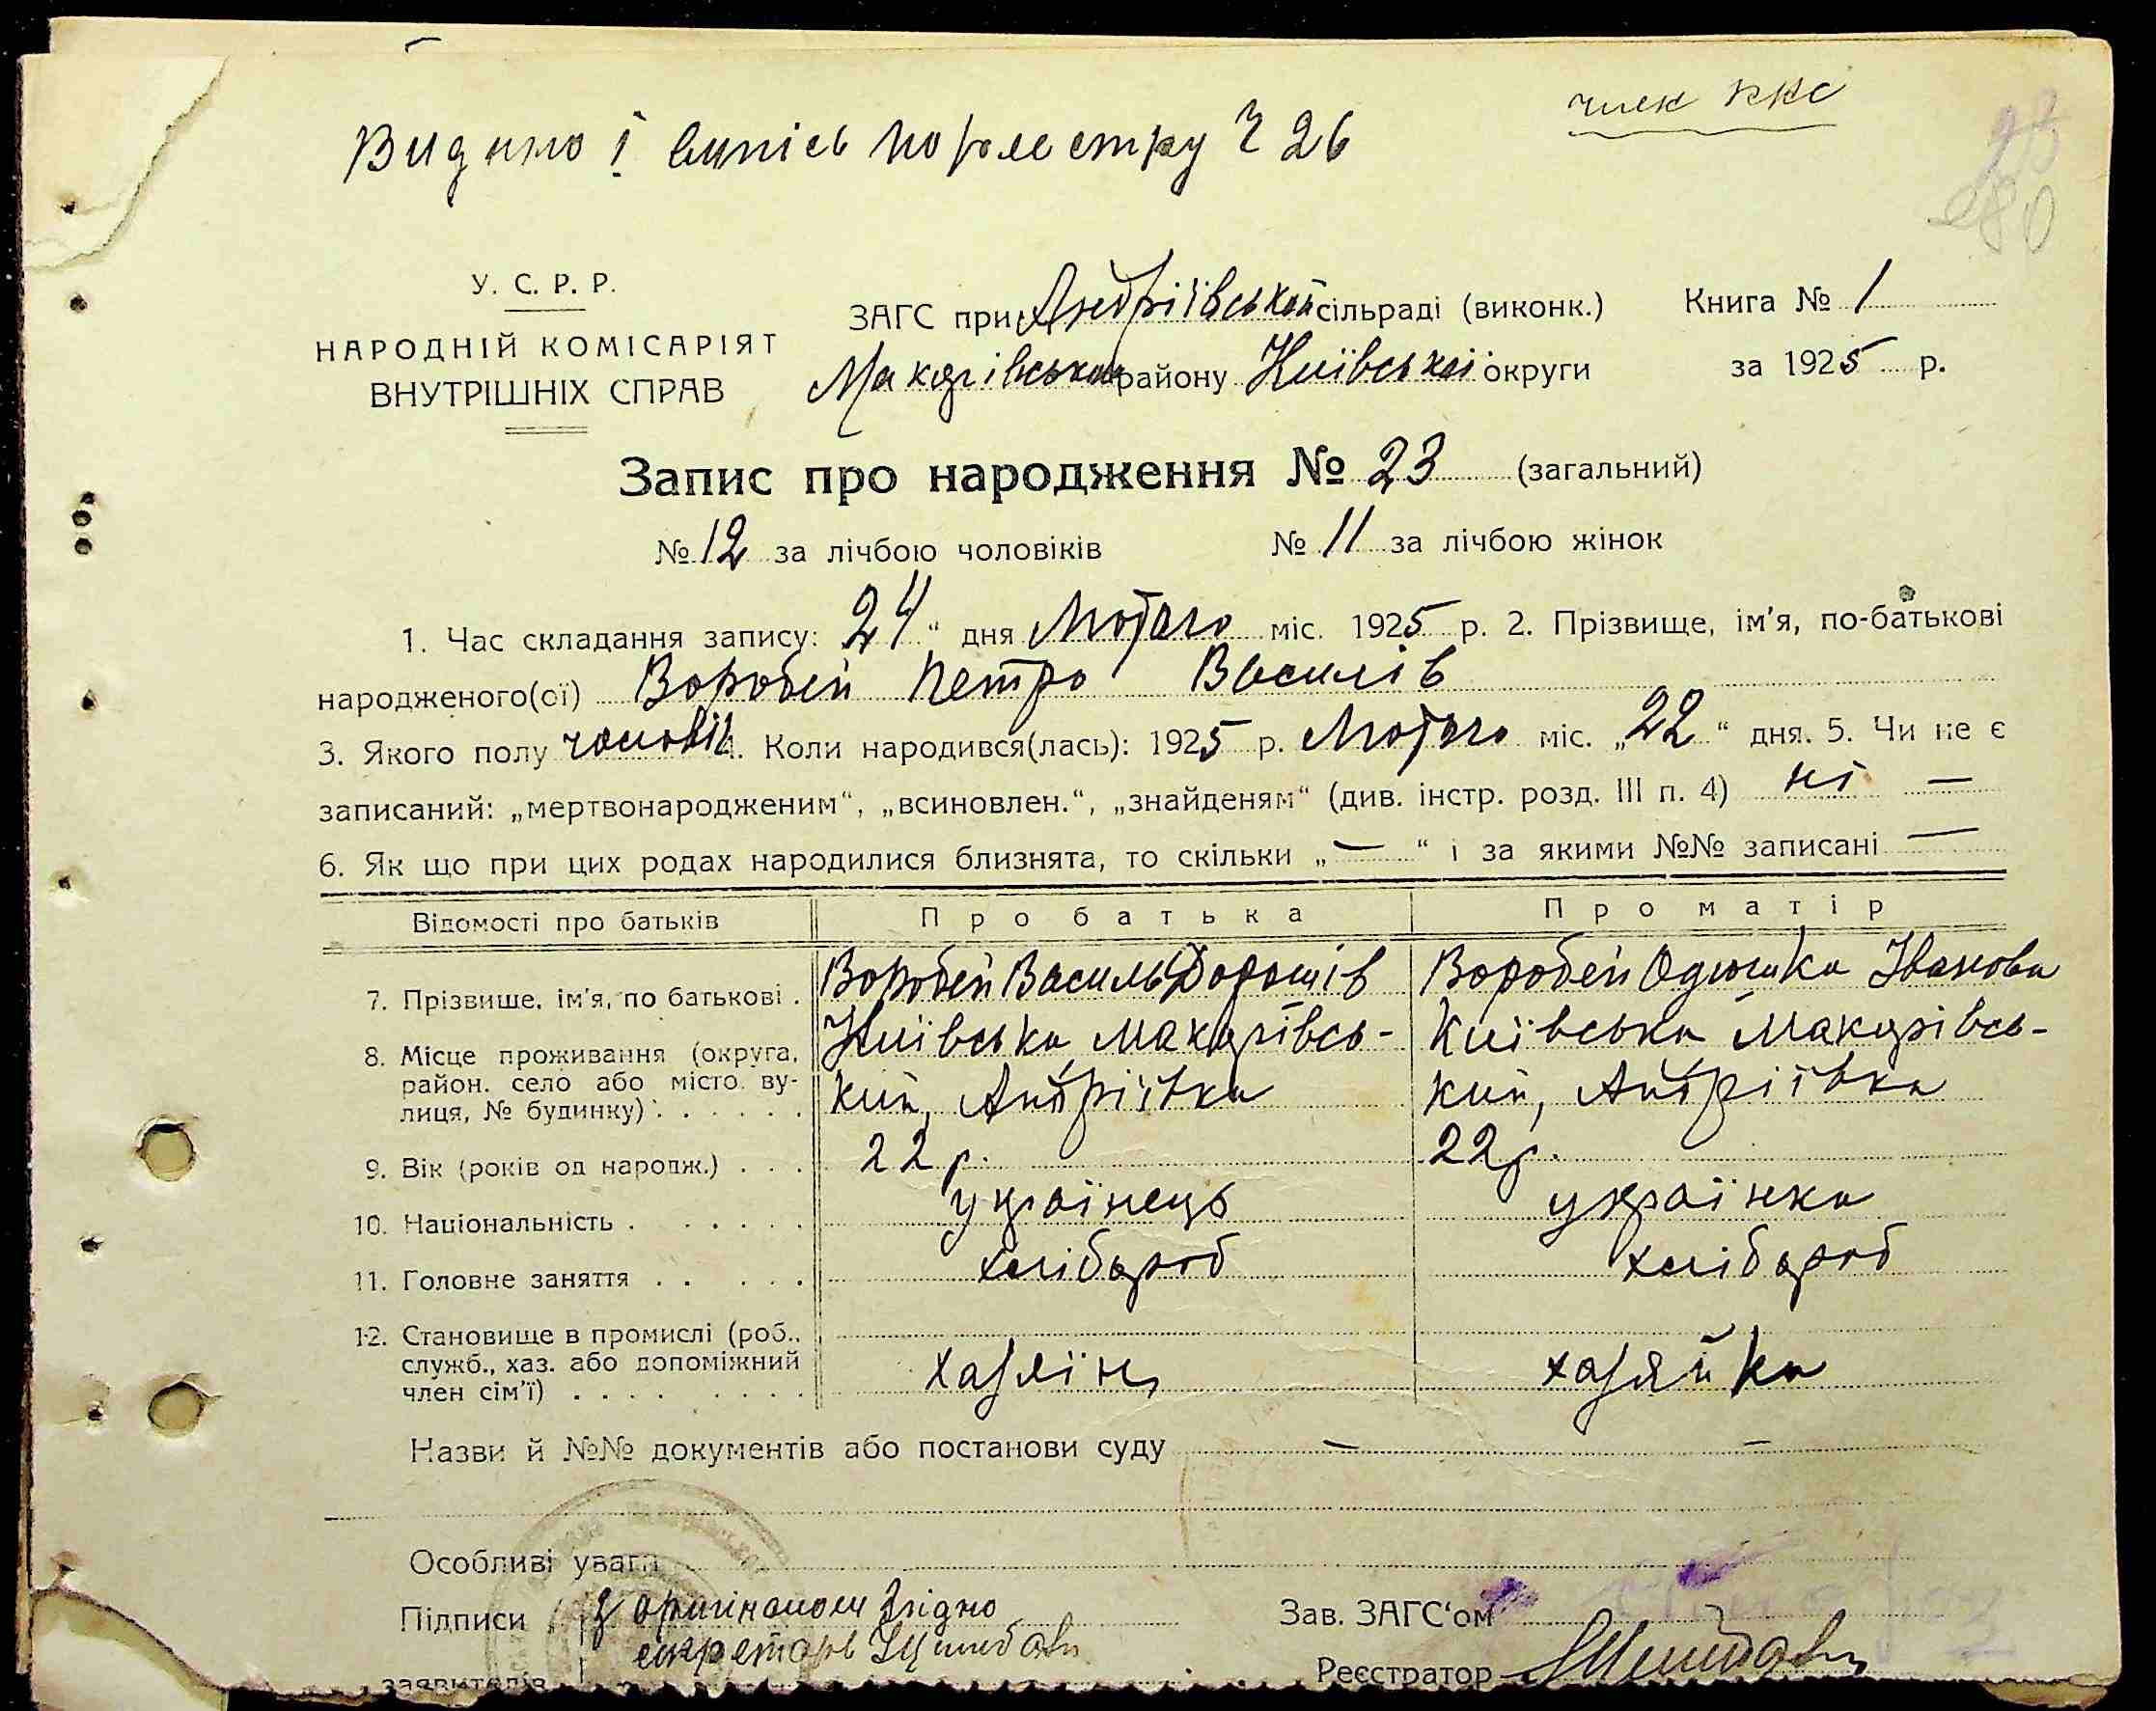 член ККС
Видано І випісь по реєстру Ч 26
28
280
У. С. Р. Р.
НАРОДНІЙ КОМІСАРІЯТ
ВНУТРІШНІХ СПРАВ
ЗАГС при Андріївській сільраді (виконк.)
Макарівського району Київської округи
Книга № 1
за 1925 р.
Запис про народження № 23 (загальний)
№ 12 за лічбою чоловіків № 11 за лічбою жінок
1. Час складання запису: 24 " дня Лютого міс. 1925 р. 2. Прізвище, ім'я, по-батькові
народженого(ої) Воробей Петро Василів
3. Якого полу чоловік 4. Коли народився(лась): 1925 р. Лютого міс. „22" дня. 5. Чи не є
записаний: „мертвонародженим", „всиновлен.", „знайденям" (див. інстр. розд. III п. 4) ні —
6. Як що при цих родах народилися близнята, то скільки „ — " і за якими №№ записані —
Відомості про батьків Про батька Про матір
7. Прізвище, ім'я, по батькові . Воробей Василь Дорошів Воробей Одюшка Іванова
8. Місце проживання (округа, Київська, Макарівсь- Київська Макарівсь-
район, село або місто, ву- кий, Андріївка кий, Андріївка
лиця, № будинку) . . . . . .
9. Вік (років од народж.) . . . 22 р. 22 р.
10. Національність . . . . . . українець українка
11. Головне заняття . . . . . хлібороб хлібороб
12. Становище в промислі (роб.,
служб., хаз. або допоміжний хазяїн хазяйка
член сім'ї) . . . . . . . . .
Назви й №№ документів або постанови суду — —
Особливі уваги
Підписи З оригіналом згідно
секретарь
заявителів
Зав. ЗАГС'ом
Реєстратор